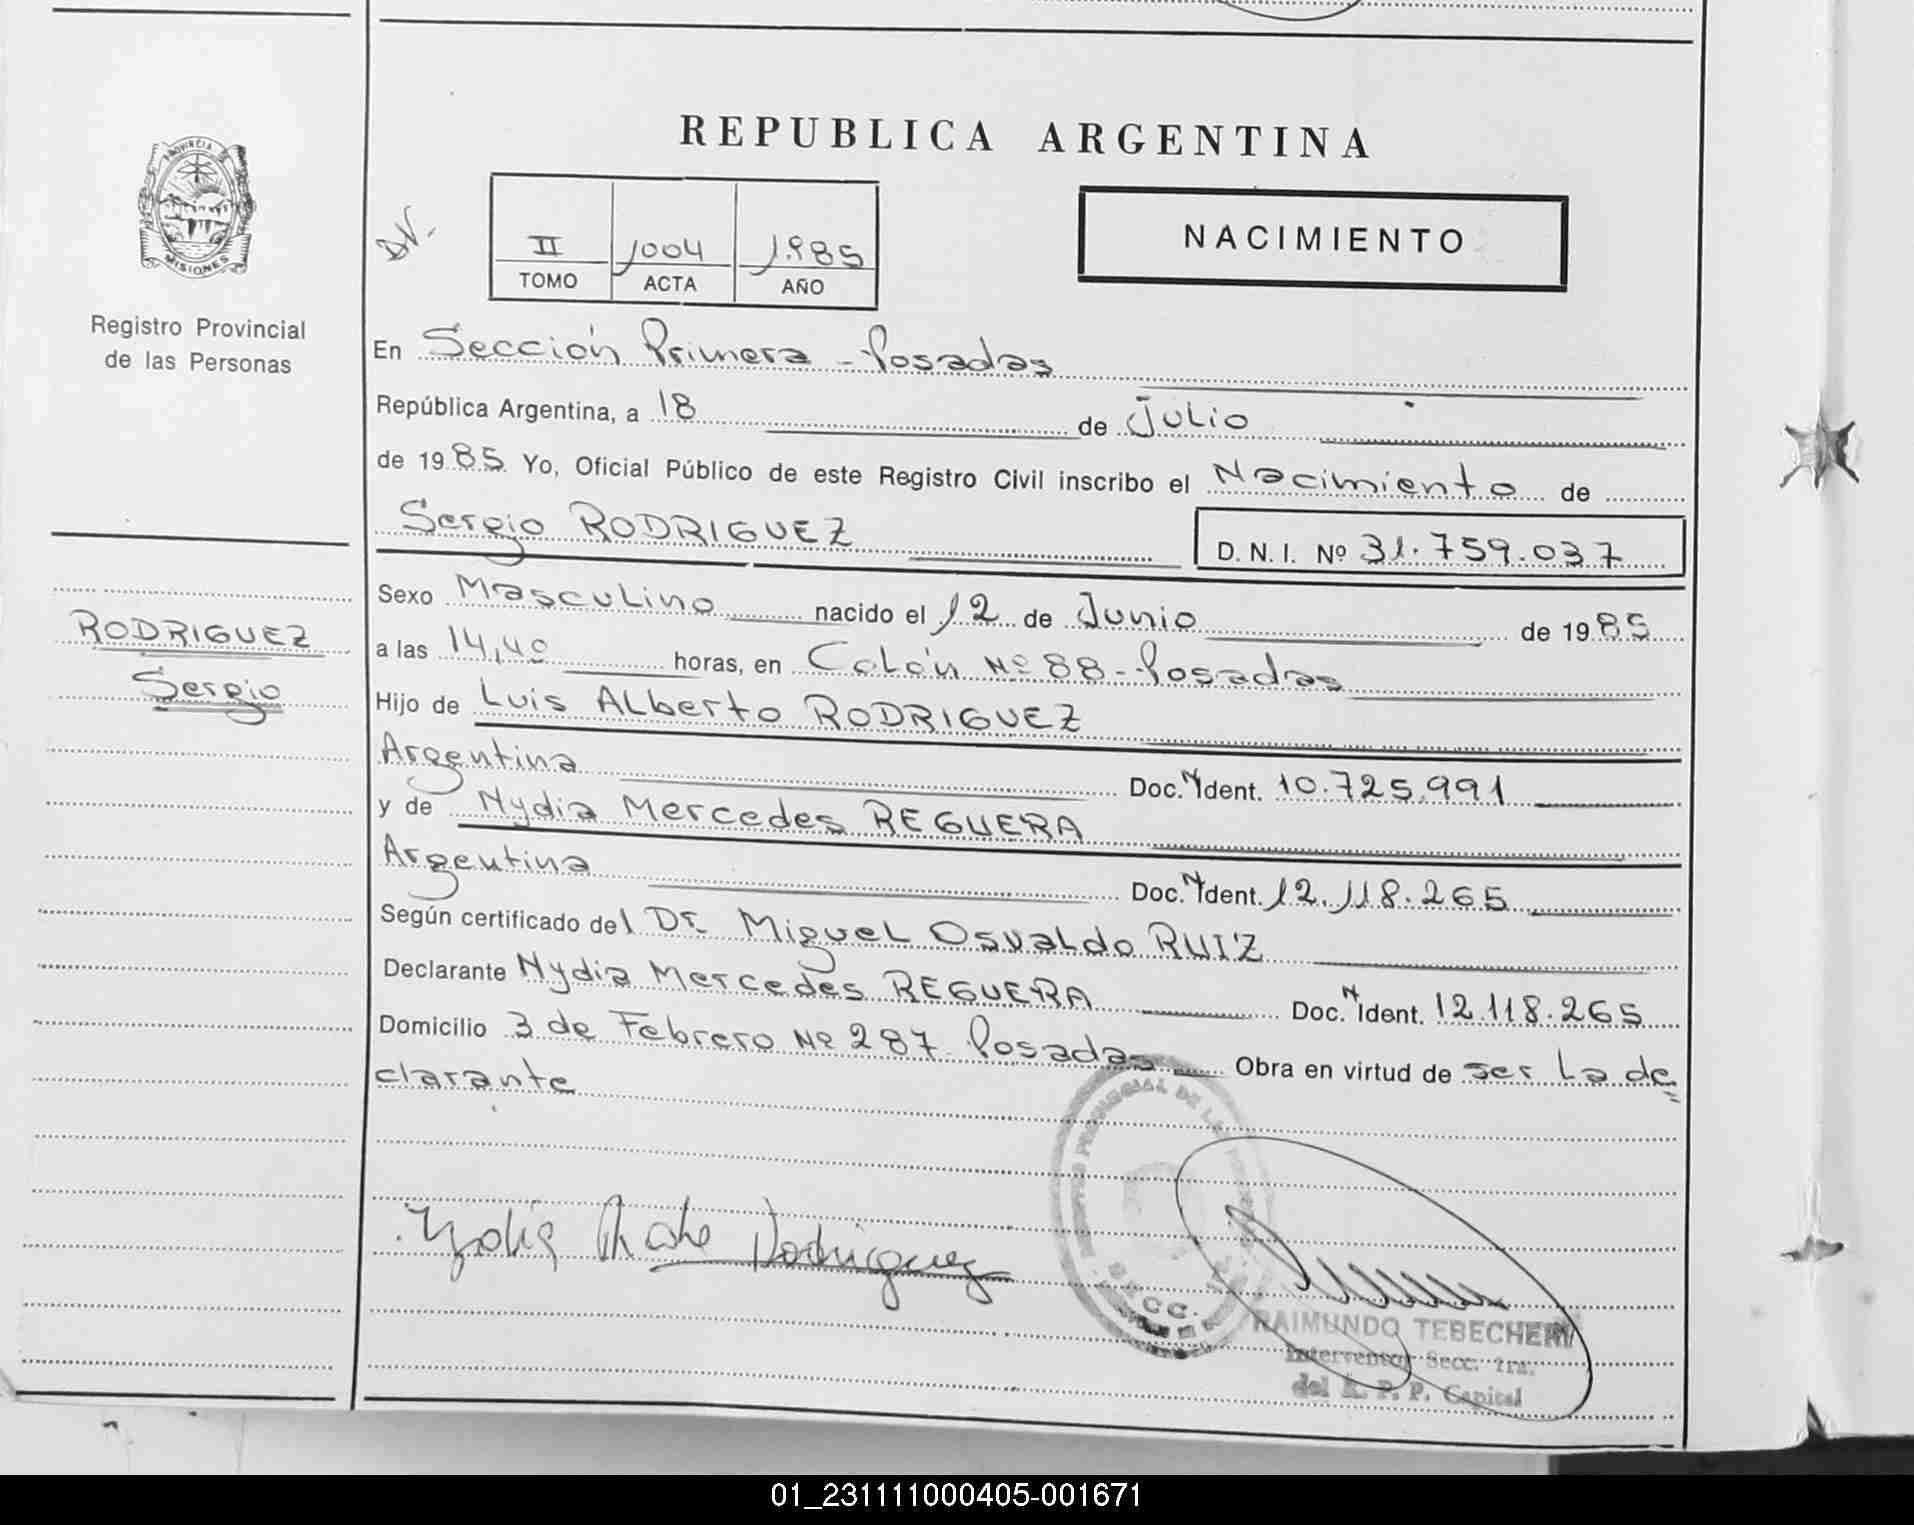 PROVINCIA DE
MISIONES
Registro Provincial
de las Personas
RODRIGUEZ
Sergio
REPUBLICA ARGENTINA
DN.
II 1004 1.985
TOMO ACTA AÑO
NACIMIENTO
En Sección Primera - Posadas
República Argentina, a 18 de Julio
de 1985 Yo, Oficial Público de este Registro Civil inscribo el Nacimiento de
Sergio RODRIGUEZ D. N. I. Nº 31.759.037
Sexo Masculino nacido el 12 de Junio de 1985
a las 14,40 horas, en Colón Nº 88 - Posadas
Hijo de Luis ALberto RODRIGUEZ
Argentina Doc. N Ident. 10.725.991
y de Nydia Mercedes REGUERA
Argentina Doc. N Ident. 12.118.265
Según certificado del Dr. Miguel Osvaldo RUIZ
Declarante Nydia Mercedes REGUERA Doc. N Ident. 12.118.265
Domicilio 3 de Febrero Nº 287 Posadas Obra en virtud de ser la de=
clarante
PROVINCIAL DE LAS
SECC.
Rodriguez
RAIMUNDO TEBECHERI
Interventor Secc. 1ra.
del R. P. P. Capital
01_231111000405-001671